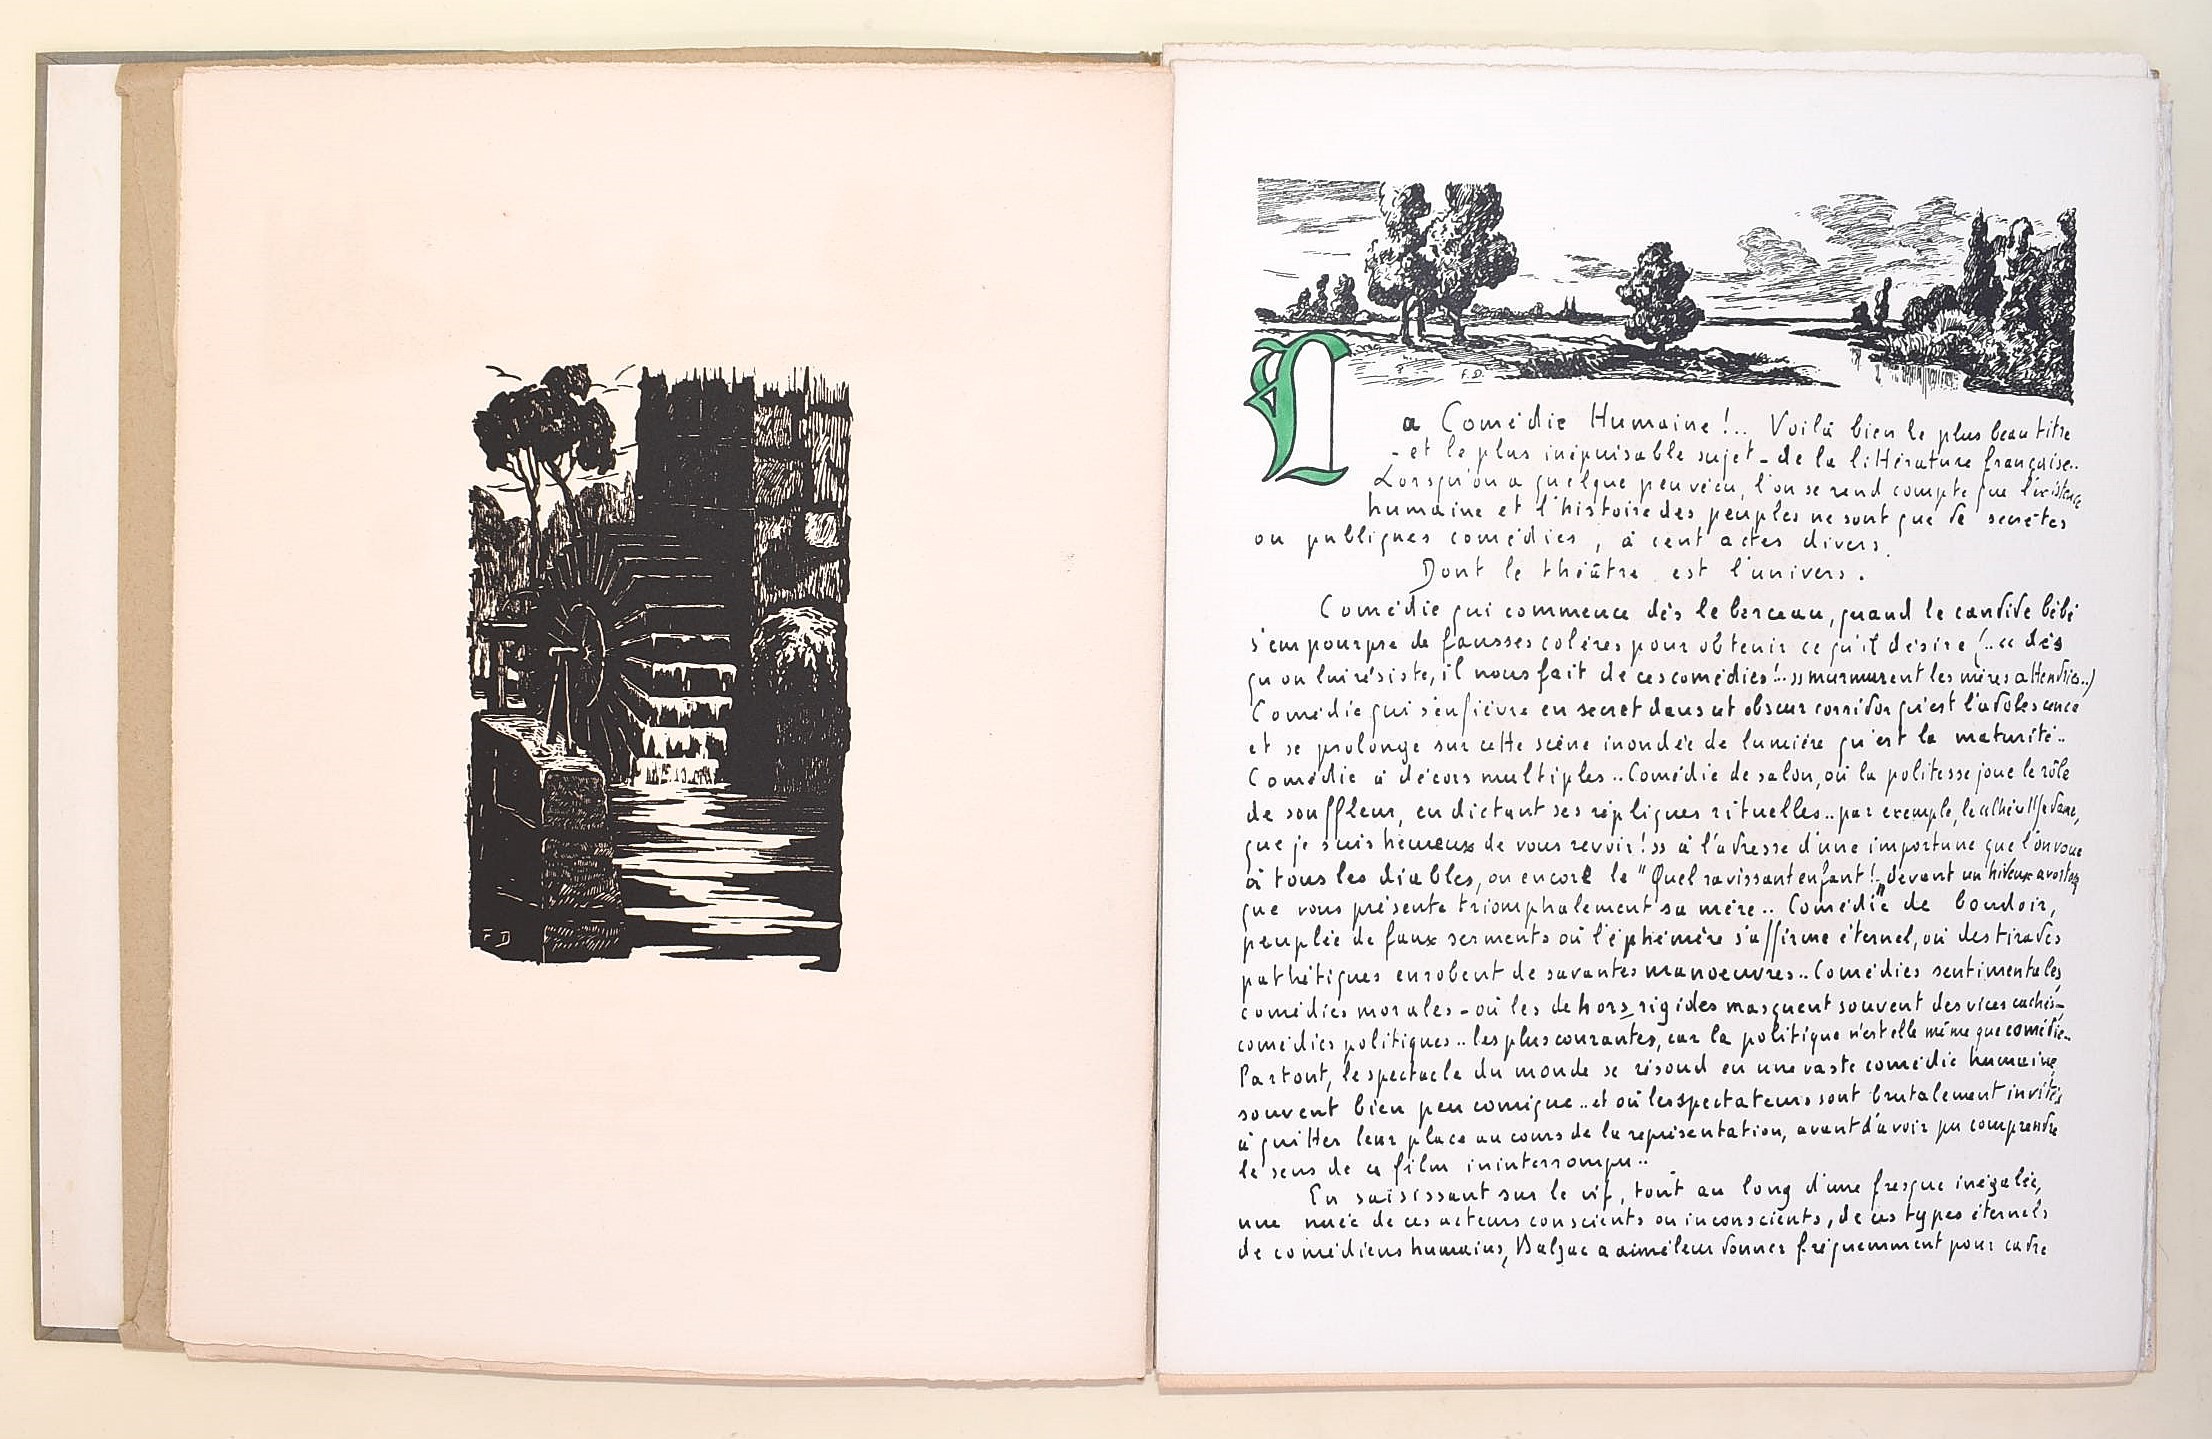 F D
F.D.
La Comédie Humaine !.. Voilà bien le plus beau titre
- et le plus inépuisable sujet - de la littérature française..
Lorsqu'on a quelque peu vécu, l'on se rend compte que l'existence
humaine et l'histoire des peuples ne sont que de secrètes
ou publiques comédies, à cent actes divers.
Dont le théâtre est l'univers.
Comédie qui commence dès le berceau, quand le candide bébé
s'empourpre de fausses colères pour obtenir ce qu'il désire (.. « dès
qu'on lui résiste, il nous fait de ces comédies !.. » murmurent les mères attendries..)
Comédie qui s'enfièvre en secret dans cet obscur corridor qu'est l'adolescence
et se prolonge sur cette scène inondée de lumière qu'est la maturité..
Comédie à décors multiples.. Comédie de salon, où la politesse joue le rôle
de souffleur, en dictant ses répliques rituelles.. par exemple, le « Chère Madame,
que je suis heureux de vous revoir ! » à l'adresse d'une importune que l'on voue
à tous les diables, ou encore le "Quel ravissant enfant !" devant un hideux avorton
que vous présente triomphalement sa mère.. Comédie de boudoir,
peuplée de faux serments où l'éphémère s'affirme éternel, où des tirades
pathétiques enrobent de savantes manoeuvres.. Comédies sentimentales,
comédies morales - où les dehors rigides masquent souvent des vices cachés -
comédies politiques.. les plus courantes, car la politique n'est elle même que comédie..
Partout, le spectacle du monde se résoud en une vaste comédie humaine,
souvent bien peu comique.. et où les spectateurs sont brutalement invités
à quitter leur place au cours de la représentation, avant d'avoir pu comprendre
le sens de ce film ininterrompu..
En saisissant sur le vif, tout au long d'une fresque inégalée,
une nuée de ces acteurs conscients ou inconscients, de ces types éternels
de comédiens humains, Balzac a aimé leur donner fréquemment pour cadre